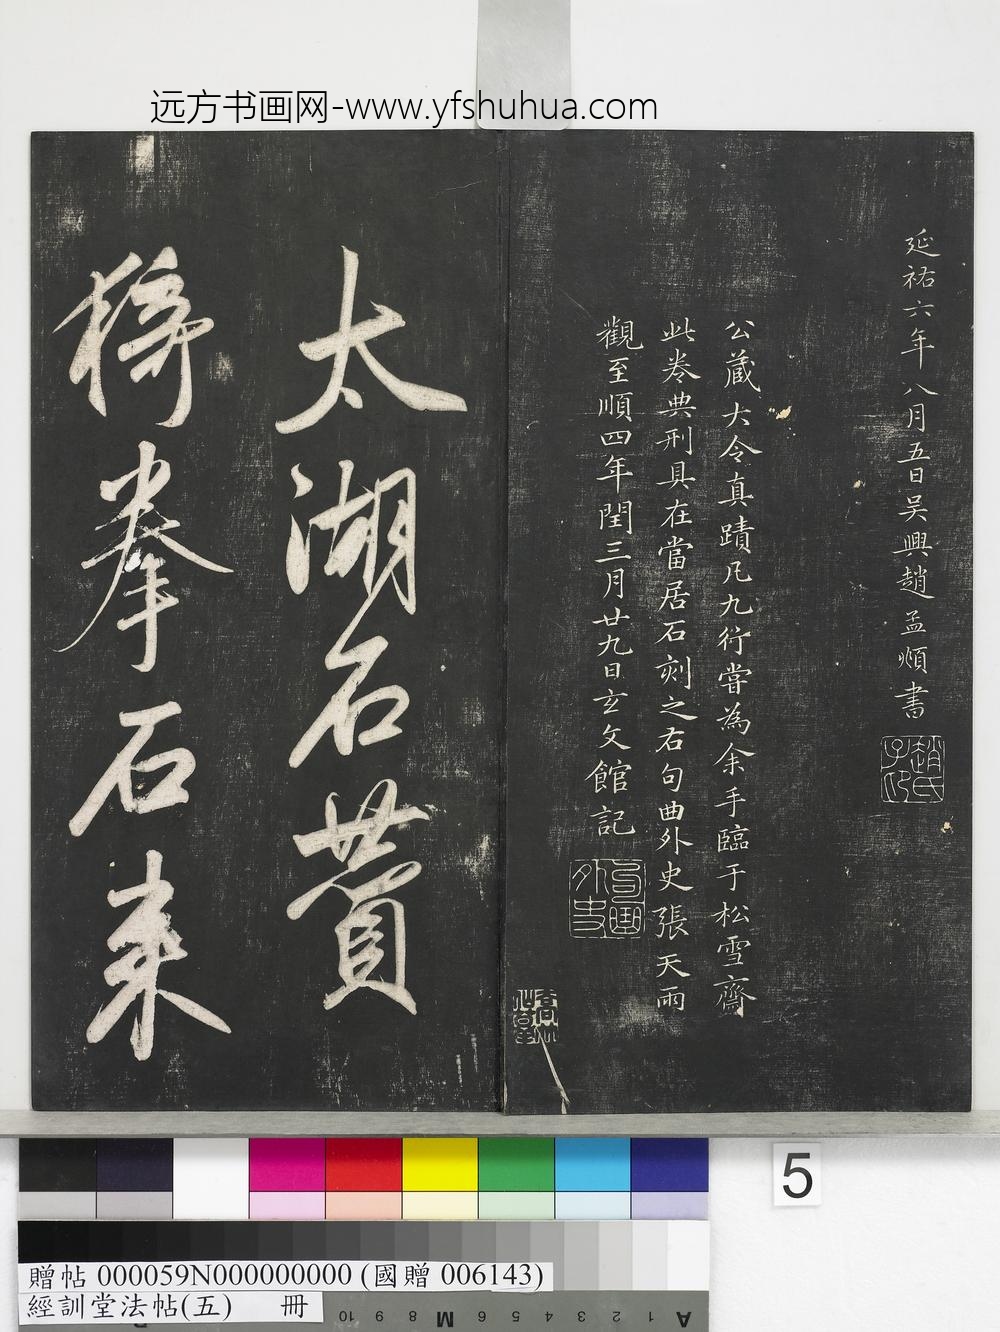 远方书画网-www.yfshuhua.com
延祐六年八月五日吴興趙孟頫書
趙氏子印
公藏大令真蹟凡九行嘗為余手臨于松雪齋
此卷典刑具在當居石刻之右句曲外史張天雨
觀至順四年閏三月廿九日玄文館記
句曲外史
太湖石贊
猗拳石来
5
贈帖 000059N000000000 (國贈 006143)
經訓堂法帖(五) 冊
A 1 2 3 4 5 6 M 8 9 10